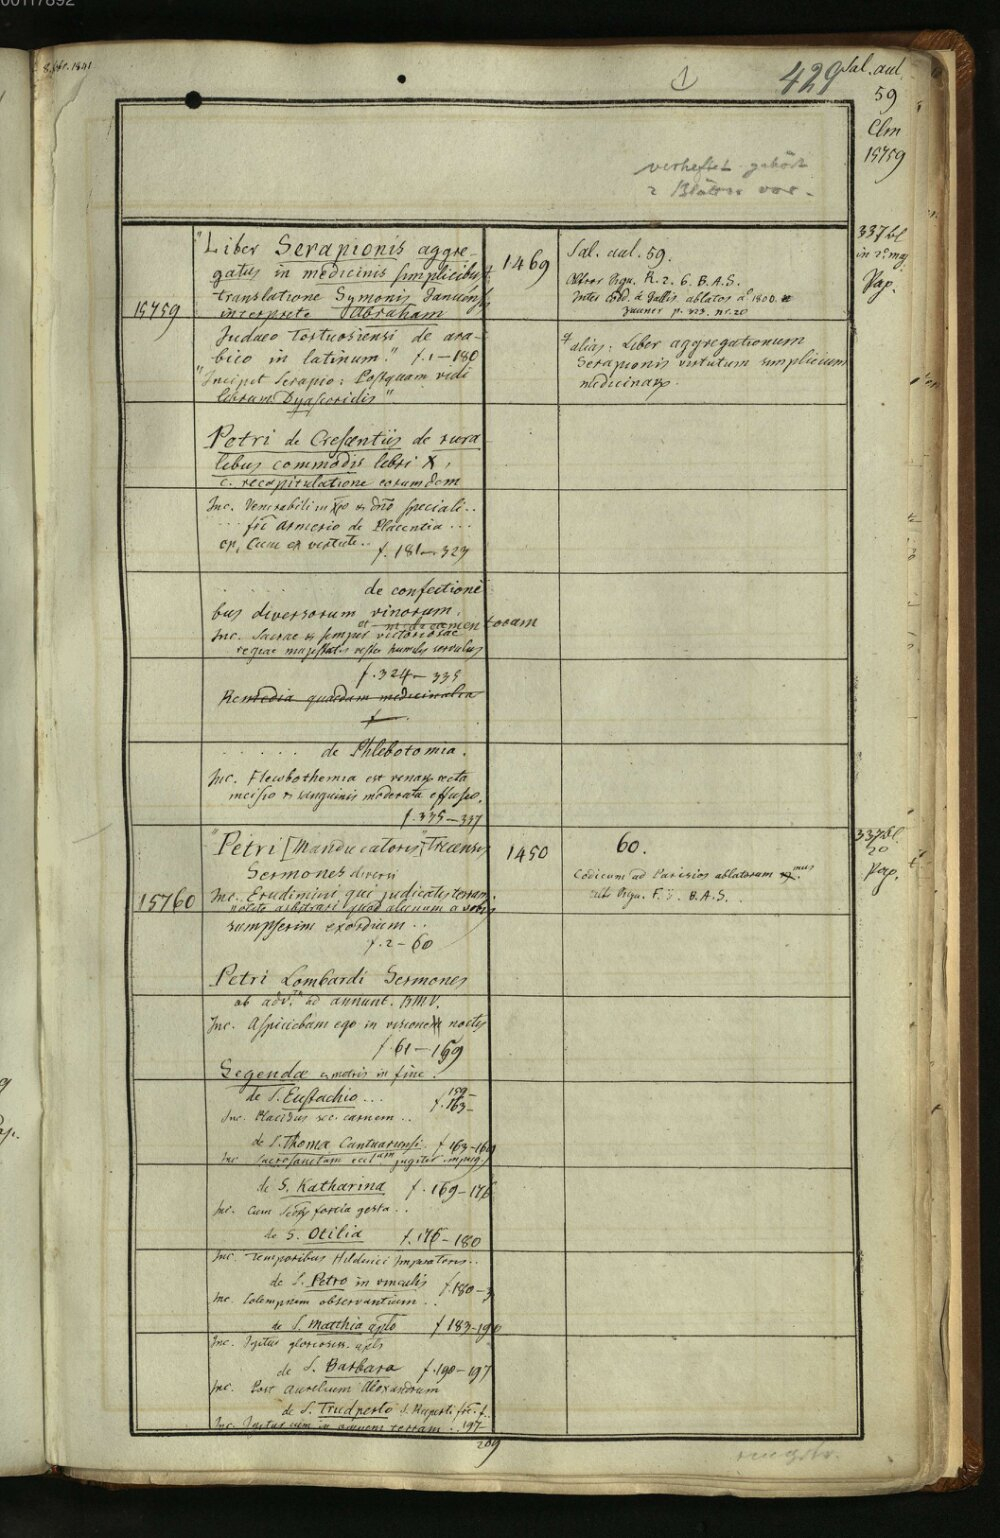 00117892
429
Sal. aul.
59
Clm
15759
verheftet gehört
2 Blätter vor.
15759
"Liber Serapionis aggre-
gatus in medicinis simplicibus
translatione Symonis Januensis
interprete Abraham
Judaeo Tortuosiensi de ara-
bico in latinum." f. 1–180
"Incipit Serapio: Postquam vidi
librum Dyascoridis"
1469
Sal. aul. 59.
R. 2. 6. B.A.S.
Inter Codd. a Gallis ablatos aº 1800.
p. 323. nr. 20
alias: Liber aggregationum
Serapionis virtutum simplicium
medicinarum.
337 bl
in 2º maj.
Pap.
Petri de Crescentiis de rura
libus commodis libri X,
c. recapitulatione eorumdem
Inc. Venerabili in xpo & dno speciali..
Armerio de Placentia ...
Cum ex virtute.. f. 181–323
de confectioni
bus diversorum vinorum.
et medicamen torum
Inc. Sacrae & semper victoriosae
regiae majestatis humilis servulus
f. 324–335
Remedia quaedam medicinalia
f.
de Phlebotomia.
Inc. Flewbothemia est venarum recta
incisio & sanguinis moderata effusio.
f. 335–337
15760
"Petri [Manducatoris] Trecensis"
Sermones diversi
Inc. Erudimini qui judicatis terram.
nolite arbitrari quod alienum a vobis
sumpserim exordium..
f. 2–60
1450
60.
Codicum ad Parisios ablatorum
sub B.A.S.
Pap.
Petri Lombardi Sermones
ab adv. ad annunt. BMV.
Inc. Aspiciebam ego in visione noctis
f. 61–159
Legendae in fine.
de S. Eustachio... 159
f. 163
Inc. Placidus sec. carnem..
de S. Thoma Cantuariensi. f. 163–169
Inc. Sacrosanctam jugiter
de S. Katharina f. 169–176
Inc. Cum fortia gesta..
de S. Otilia f. 176–180
Inc. Temporibus Hilderici Imperatoris..
de S. Petro in vinculis f. 180–3
Inc. Solempnem observantium..
de S. Matthia aplo f. 183–190
Inc. Igitur
de S. Barbara f. 190–197
Inc. Post Aurelium Alexandrum
de S. Trudperto S. Ruperti
Inc. in omnem terram.. 197
209